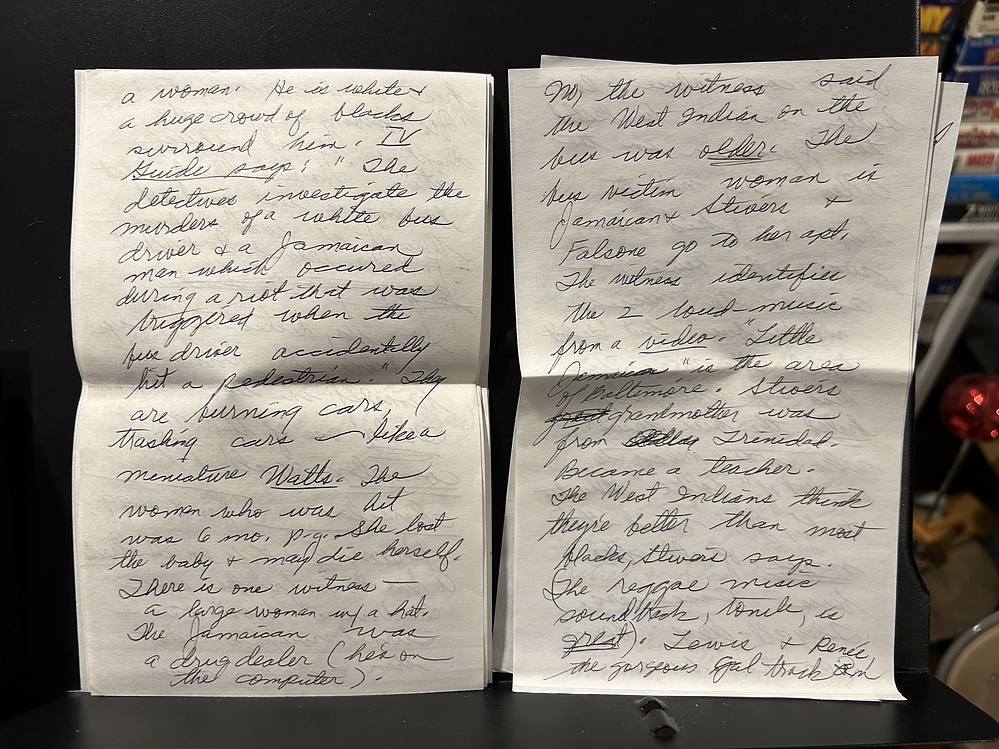 a woman. He is white &
a huge crowd of blacks
surround him. TV
Guide says: "The
detectives investigate the
murders of a white bus
driver & a Jamaican
man which occured
during a riot that was
triggered when the
bus driver accidentally
hit a pedestrian." They
are burning cars,
trashing cars — like a
miniature Watts. The
woman who was hit
was 6 mo. p.g. She lost
the baby & may die herself.
There is one witness —
a large woman w/ a hat.
The Jamaican was
a drug dealer (he's on
the computer).
No, the witness said
the West Indian on the
bus was older. The
bus victim woman is
Jamaican & Stivers &
Falsone go to her apt.
The witness identifies
the 2 loud-music
from a video. "Little
Jamaica" is the area
of Baltimore. Stivers
great grandmother was
from Trinidad.
Became a teacher.
The West Indians think
they're better than most
blacks, Stivers says.
(The reggae music
soundtrack, tonite, is
great). Lewis & Renée
the gorgeous gal track
MY
MATO